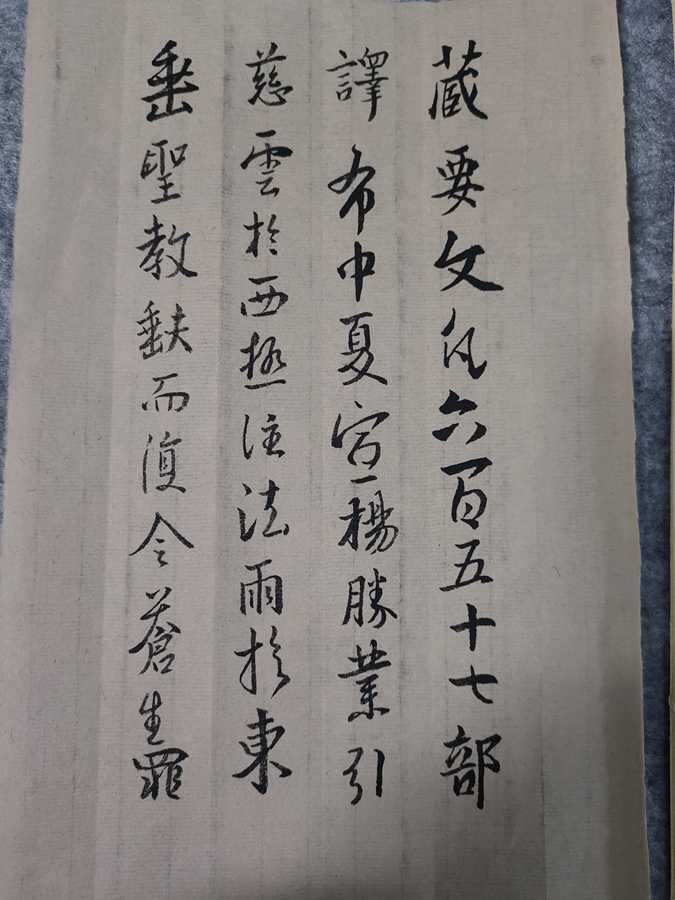 藏要文凡六百五十七部
譯布中夏宣揚勝業引
慈雲於西極注法雨於東
垂聖教缺而復令蒼生罪